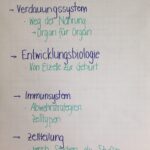 → Verdauungssystem
Weg der Nahrung
→ Organ für Organ
→ Entwicklungsbiologie
Von Eizelle zur Geburt
→ Immunsystem
- Abwehrstrategien
- Zelltypen
→ Zellteilung